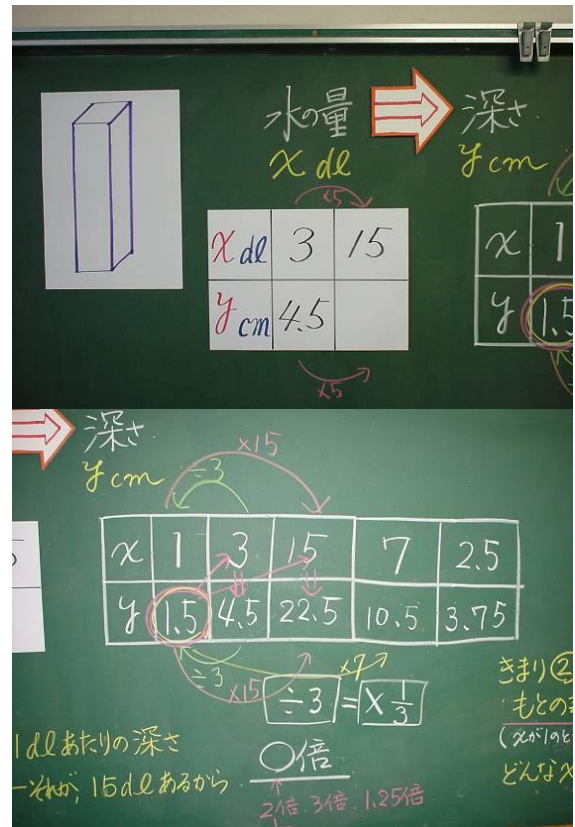 水の量
深さ
x dl
y cm
×5
x dl 3 15
y cm 4.5
×5
x 1
y 1.5
深さ
y cm
×15
÷3
x 1 3 15 7 2.5
y 1.5 4.5 22.5 10.5 3.75
÷3
×15
×7
÷3 = × 1/3
きまり②
もとの
1dlあたりの深さ
(xが1のと
○倍
それが、15dlあるから
どんなx
2倍.3倍.1.25倍